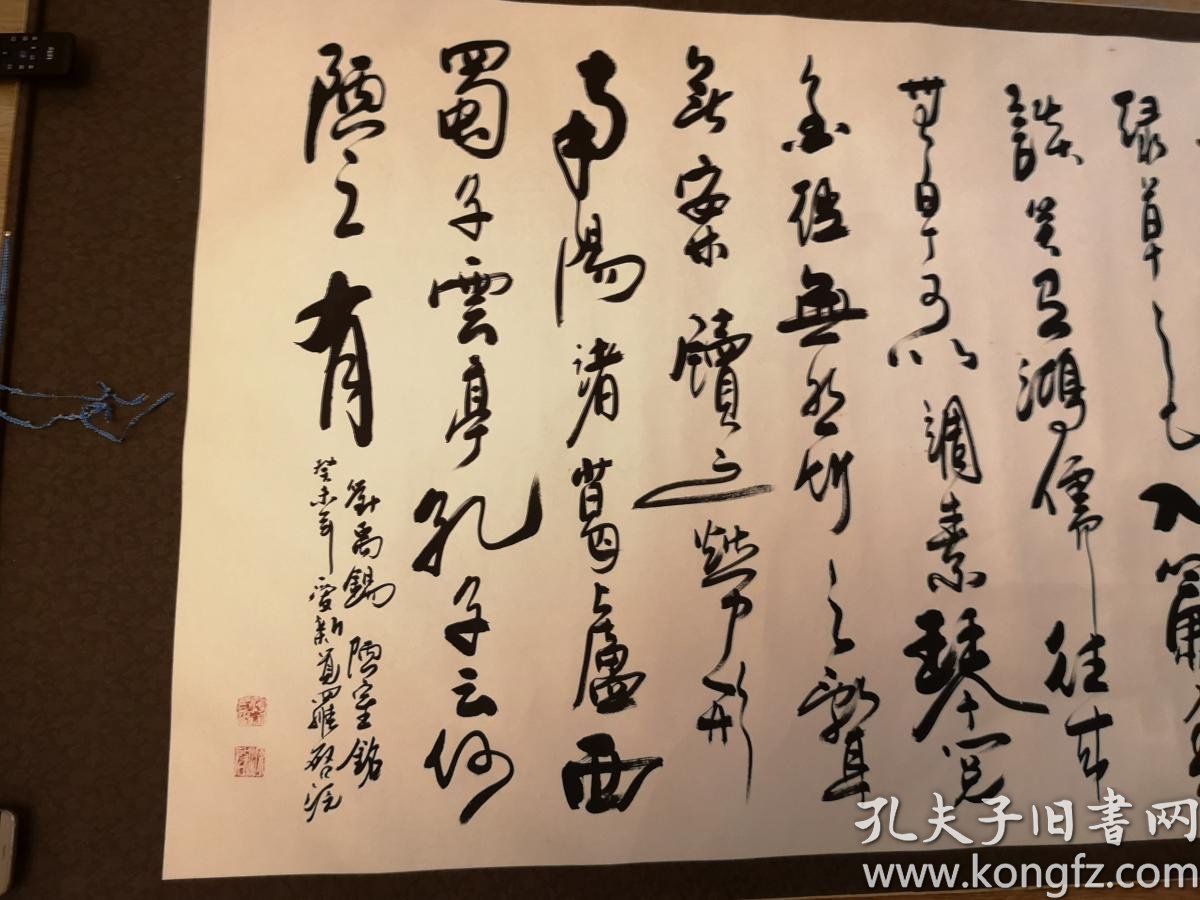 綠草色入簾
談笑有鴻儒往來
無白丁可以調素琴閱
金經無絲竹之亂耳
無案牘之勞形
南陽諸葛廬西
蜀子雲亭孔子云何
陋之有
劉禹錫 陋室銘
癸未年 愛新覺羅啓
孔夫子旧書网
www.kongfz.com